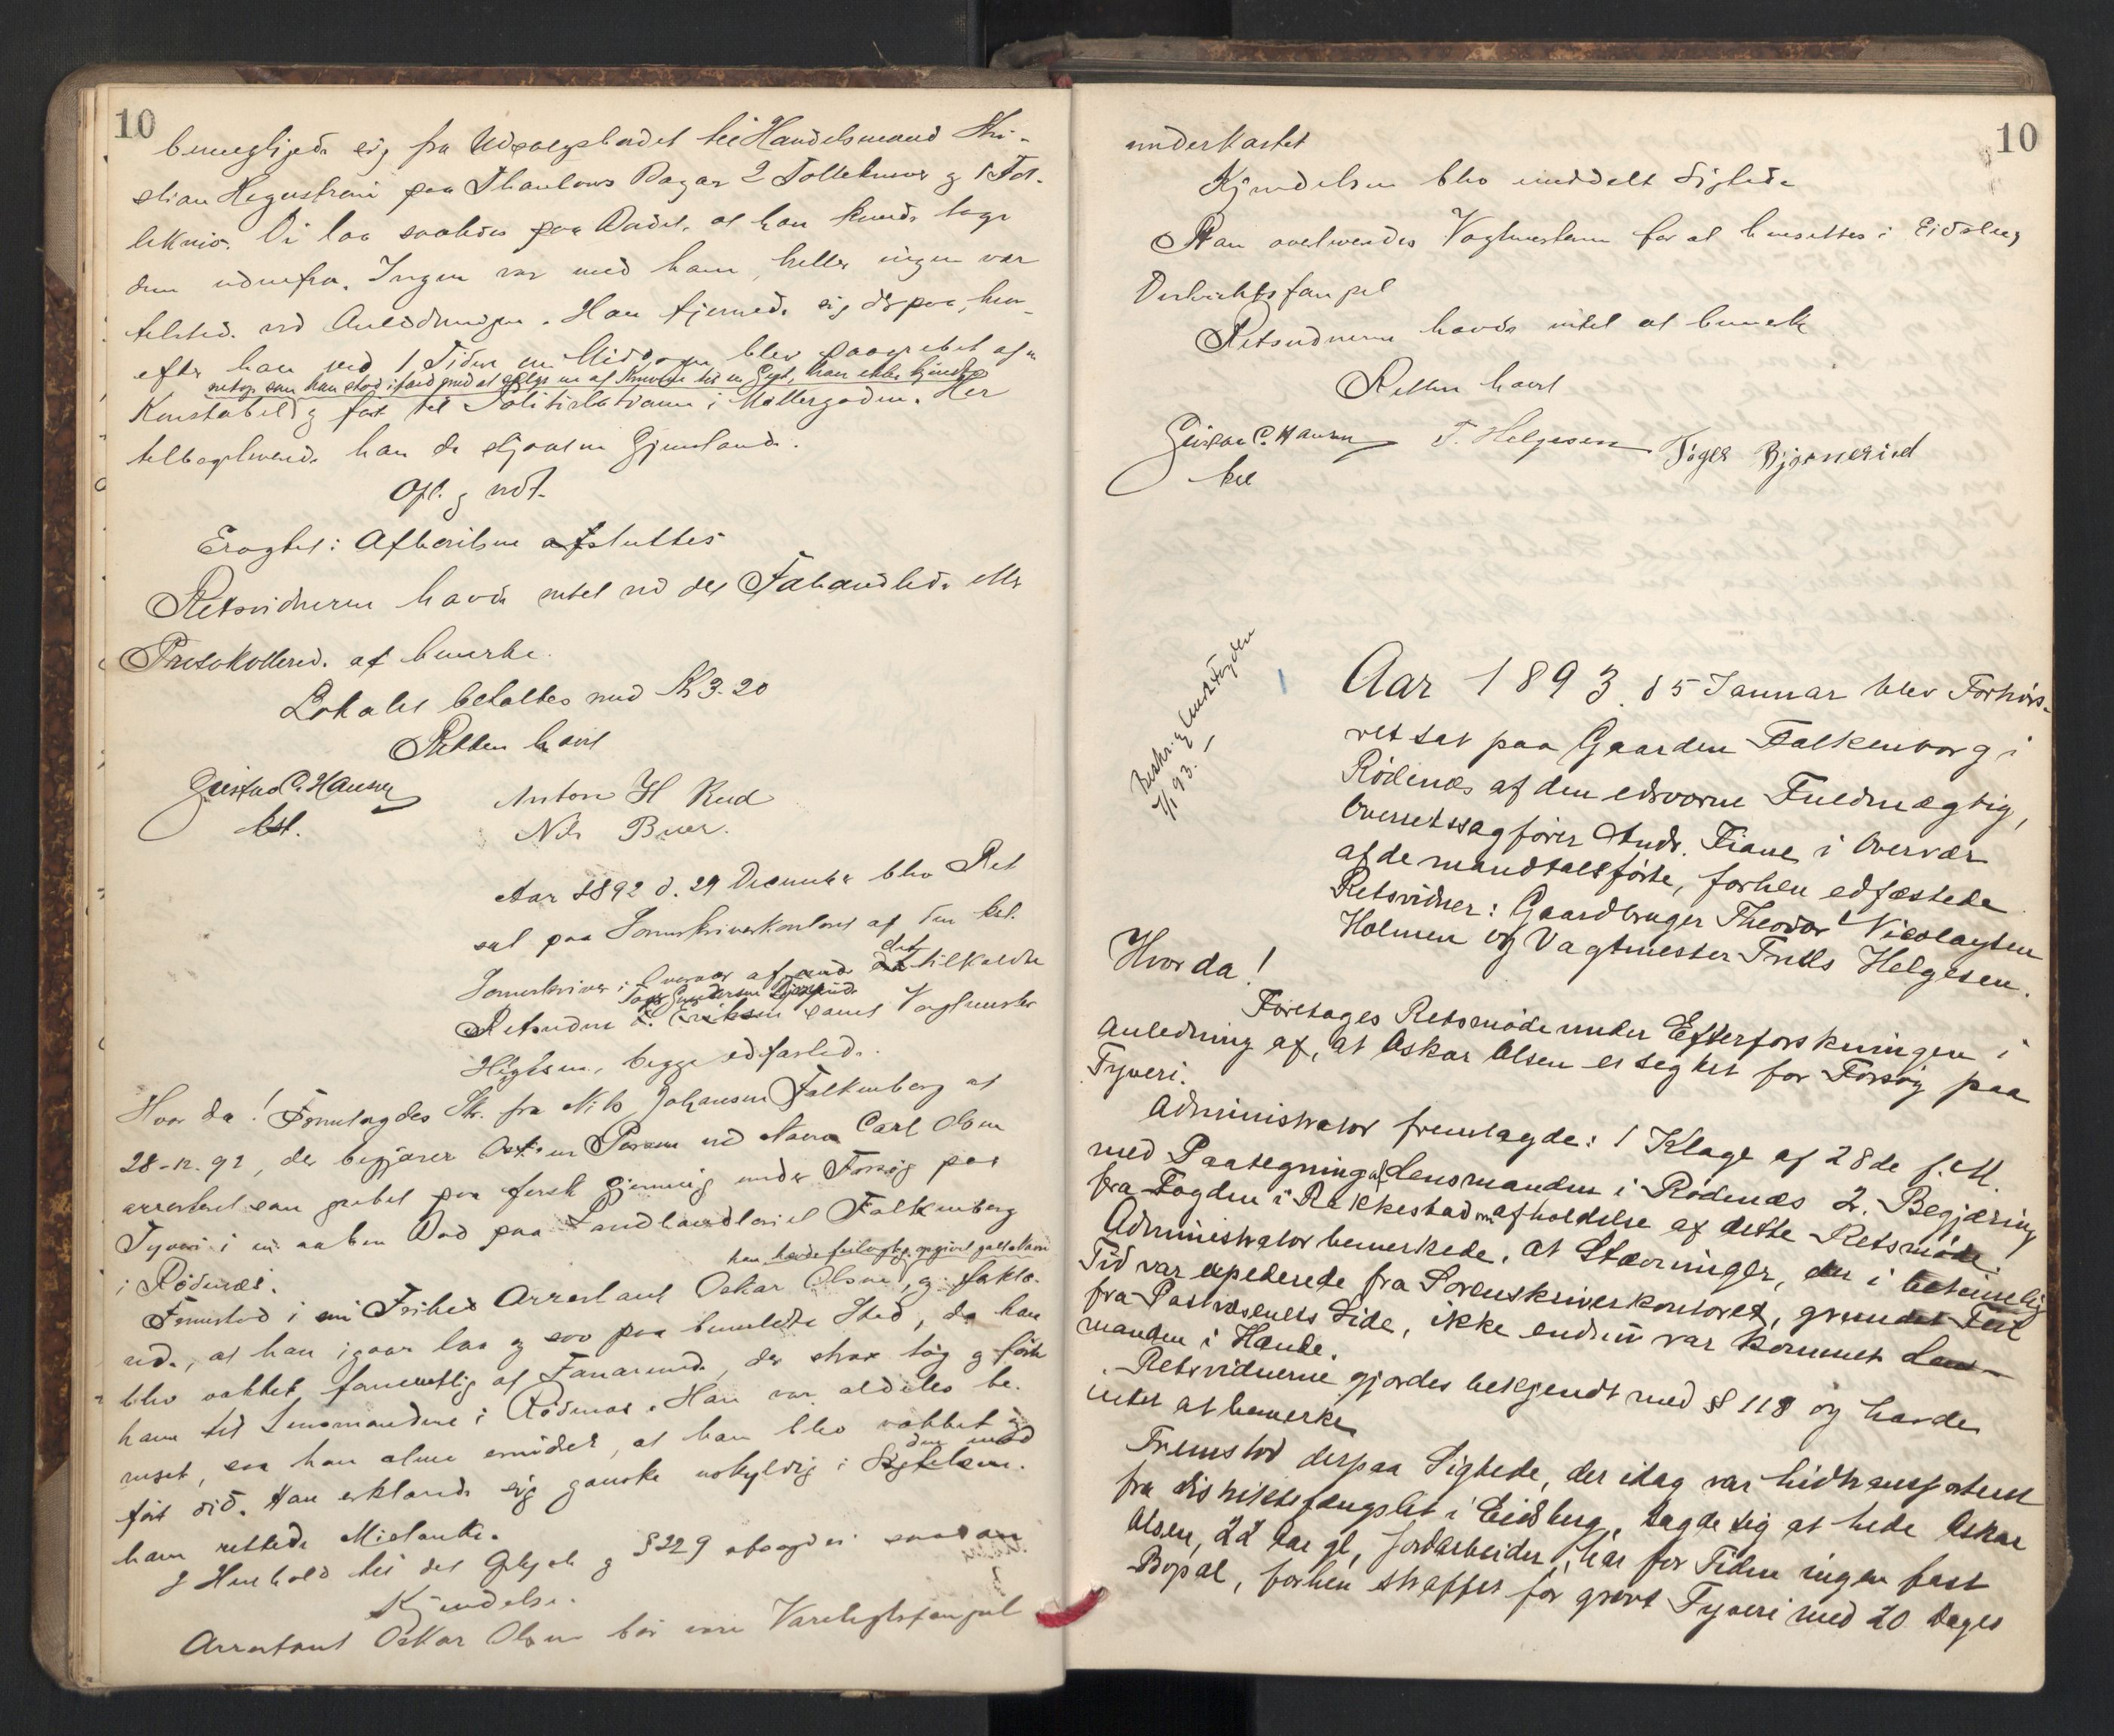 10
sig fra Udsalgsbordet til Handelsmand Kri-
stian paa Thaulows Bazar 2 Tolleknive og 1 Fol-
lekniv. De laa saaledes paa Bordet, at han kunde tage
dem udenfra. Ingen var med ham, heller ingen var
tilsted. ved Anledningen. Han fjernede sig derpaa, hvor-
efter han ved 1 Tiden om Middagen blev paagrebet af en
netop som han stod ifærd med at sælge en af Knivene til en Gut, han ikke kjendte
Konstabel og ført til Politistationen i Møllergaden. Her
tilbageleverede han de stjaalne Gjenstande.
Opl. og vedt.
Eragtet: Afhørelsen afsluttes
Retsvidnerne havde intet ved det Forhandlede eller
Protokollerede at bemerke.
Lokalet betaltes med Kr 3.20
Retten hævet
Gustav C. Hansen
kst.
Anton H Rud
Nils Buer.
Aar 1892 d. 29 December blev Ret
sat paa Sorenskriverkontoret af den kst.
Sorenskriver i Overvær af det tilkaldte
Retsvidne samt Vagtmester
Helgesen, begge edfæstede.
Hvor da! Fremlagdes Skr. fra Nils Johansen Falkenberg af
28-12.92, der begjærer en Person ved Navn Carl Olsen
arresteret som grebet paa fersk Gjerning under Forsøg paa
Tyveri i en aaben Bod paa Landhandleriet Falkenberg
i Rødenæs.
han havde feilagtig opgivet galt Navn
Fremstod i sin Frihed Arrestant Oskar Olsen, og forkla-
rede, at han igaar laa og sov paa bemeldte Sted, da han
blev vækket, formentlig af der strax tog og førte
ham til Lensmanden i Rødenæs. Han var aldeles be-
ruset, saa han alene erindrer, at han blev vækket og
ført did. Han erklærede sig ganske uskyldig i den mod
ham rettede Mistanke.
I Henhold til det og § 229 afsagdes saadan
Kjendelse.
Arrestant Oskar Olsen bør være Varetægtsfængsel
10
underkastet
Kjendelsen blev meddelt Sigtede
Han overleveredes Vagtmesteren for at hensættes i Eidsberg
Distriktsfængsel
Retsvidnerne havde intet at bemerke
Retten hævet
Gustav C. Hansen T. Helgesen Tøger Bjørnerud
kst
Beskr. sendt Fogden
7/1 93.
Aar 1893 d 5 Januar blev Forhørs-
ret sat paa Gaarden Falkenborg i
Rødenæs af den edsvorne Fuldmægtig,
Overretssagfører Andr. Fiane i Overvær
af de mandtalsførte, forhen edfæstede
Retsvidner: Gaardbruger Theodor Nicolaysen
Holmen og Vagtmester Helgesen.
Hvor da!
Foretages Retsmøde under Efterforskningen i
Anledning af, at Oskar Olsen er sigtet for Forsøg paa
Tyveri.
Administrator fremlagde: 1 Klage af 28de f. M.
med Paategning af Lensmanden i Rødenæs 2. Begjæring
fra Fogden i Rakkestad om Afholdelse af dette Retsmøde.
Administrator bemerkede, at Stævninger, der i betimelig
Tid var expederede fra Sorenskriverkontoret, grundet Feil
fra Postvæsenets Side, ikke endnu var kommet Lens-
manden i Hænde.
Retsvidnerne gjordes bekjendt med § 118 og havde
intet at bemerke
Fremstod derpaa Sigtede, der idag var hidtransporteret
fra Distriktsfængslet i Eidsberg, sagde sig at hede Oskar
Olsen, 22 Aar gl., Jordarbeider, har for Tiden ingen fast
Bopæl, forhen straffet for grovt Tyveri med 20 Dages